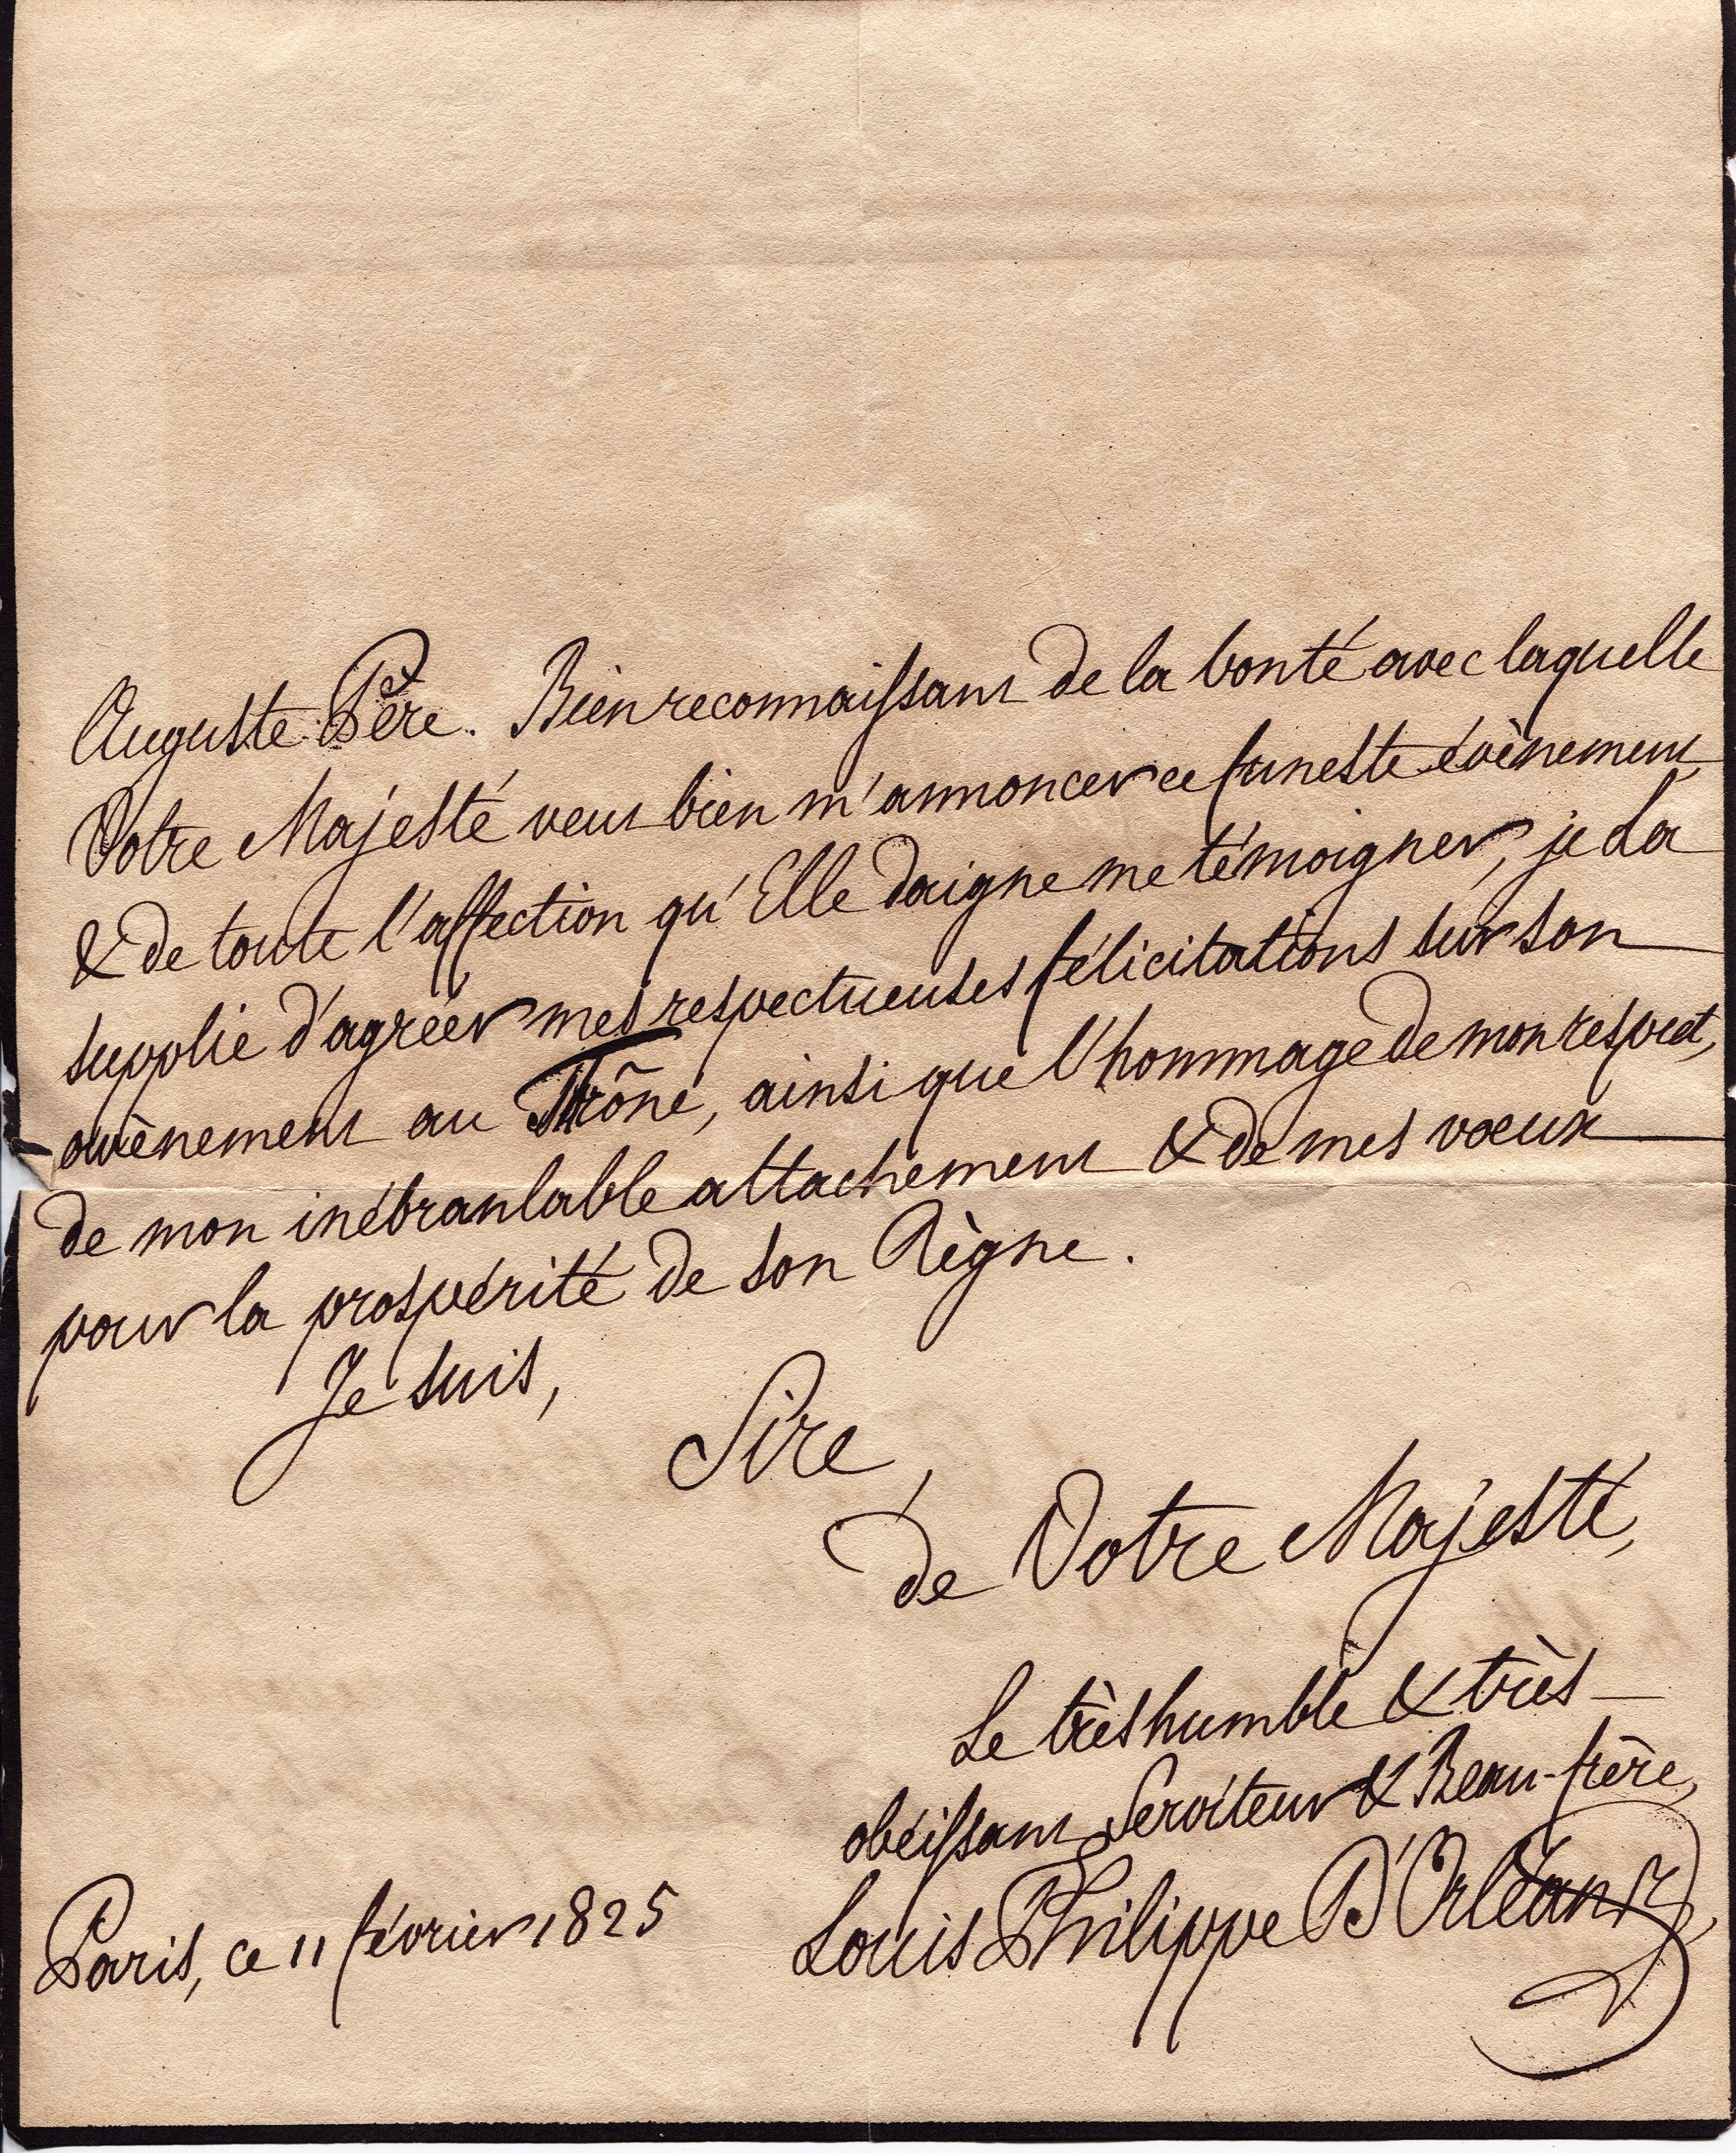 Auguste Père. Bien reconnaissant de la bonté avec laquelle
Votre Majesté veut bien m'annoncer ce funeste évènement
& de toute l'affection qu'Elle daigne me témoigner, je La
supplie d'agréer mes respectueuses félicitations sur son
avènement au Trône, ainsi que l'hommage de mon respect,
de mon inébranlable attachement & de mes vœux
pour la prospérité de son Règne.
Je suis,
Sire,
de Votre Majesté,
Le très humble & très
obéissant Serviteur & Beau-frère,
Louis Philippe D'Orléans
Paris, ce 11 février 1825